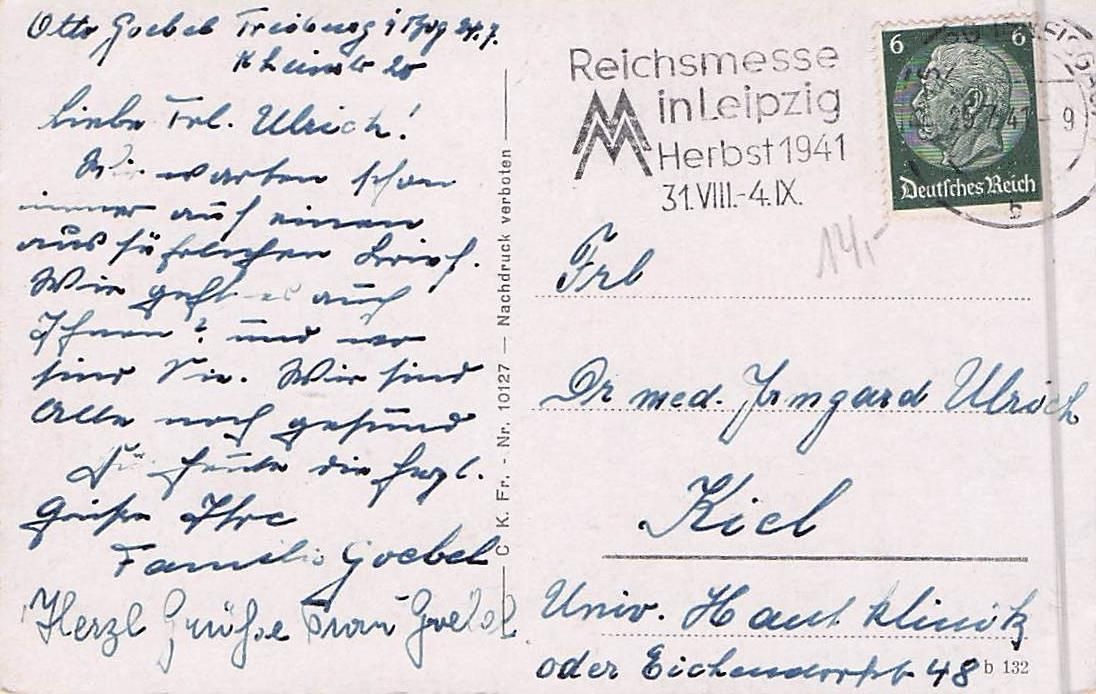 Otto Goebel Freiburg i Brsg 24.7.
Rheinstr 20
Liebe Frl. Ulrich!
Wir warten schon
immer auf einen
ausführlichen Brief.
Wie geht es auch
Ihnen? und wo
sind Sie. Wir sind
Alle noch gesund
für heute die herzl.
Grüße Ihre
Familie Goebel
Herzl Grüße Frau Goebel
C. K. Fr. - Nr. 10127 — Nachdruck verboten
Reichsmesse
in Leipzig
Herbst 1941
31.VIII.-4.IX.
6 6
Deutsches Reich
41-9
b
14,-
Dr med. Irmgard Ulrich
Kiel
Univ. Hautklinik
oder Eichendorffstr 48
b 132